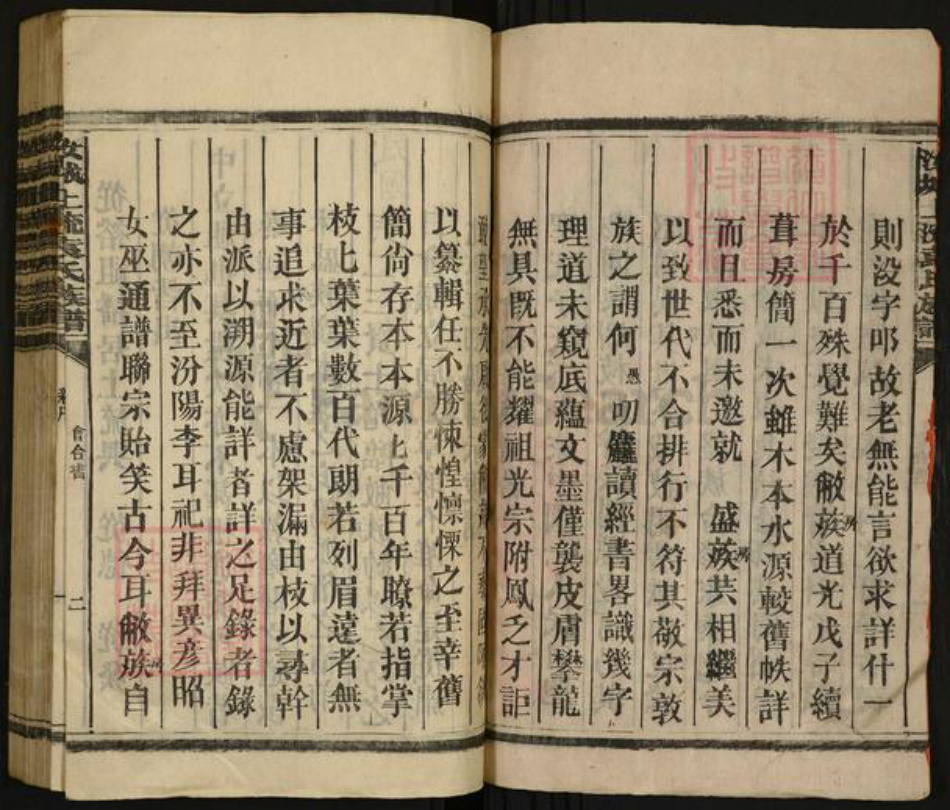 則没字叩故老無能言欲求詳什一
於千百殊覺難矣敝族房道光戊子續
葺房簡一次雖木本水源較舊帙詳
而且悉而未邀就　盛族房共相繼美
以致世代不合排行不符其敬宗敦
族之謂何愚叨讀經書畧識幾字
理道未窺底蘊文墨僅襲皮膚攀龍
無具既不能耀祖光宗附鳳乏才詎
以纂輯任不勝悚惶懔慄之至幸舊
簡尙存本本源上千百年瞭若指掌
枝上葉葉數百代朗若列眉遠者無
事追求近者不慮架漏由枝以尋幹
由派以溯源能詳者詳之足錄者錄
之亦不至汾陽李耳祀非拜異彦昭
女巫通譜聯宗貽笑古今耳敝族自
上流袁氏族譜
會合舊
二